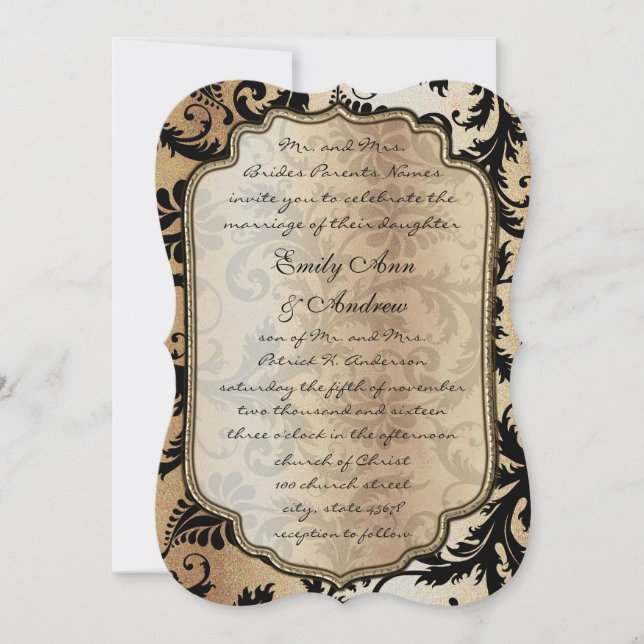 Mr. and Mrs.
Brides Parents Names
invite you to celebrate the
marriage of their daughter
Emily Ann
& Andrew
son of Mr. and Mrs.
Patrick H. Anderson
saturday the fifth of november
two thousand and sixteen
three o'clock in the afternoon
church of Christ
100 church street
city, state 45678
reception to follow